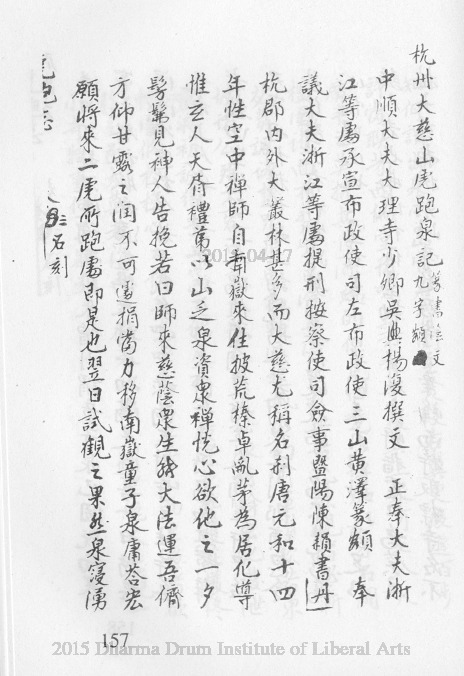 杭州大慈山虎跑泉記 篆書陰文九字額
中順大夫大理寺少卿吳興楊復撰文 正奉大夫浙
江等處承宣布政使司左布政使三山黃澤篆額 奉
議大夫浙江等處提刑按察使司僉事暨陽陳韻書丹
杭郡內外大叢林甚多而大慈尤稱名刹唐元和十四
年性空中禪師自南嶽來住披荒榛卓亂茅為居化導
惟立人天侍禮蕃以山乏泉資眾禪悅心欲他之一夕
髣髴見神人告挽若曰師來慈蔭眾生紹大法運吾儕
方仰甘露之潤不可遽捐當力移南嶽童子泉庸荅宏
願將來二虎所跑處即是也翌日試觀之果然泉寖湧
虎跑志
石刻
157
2015-04-17
2015 Dharma Drum Institute of Liberal Arts